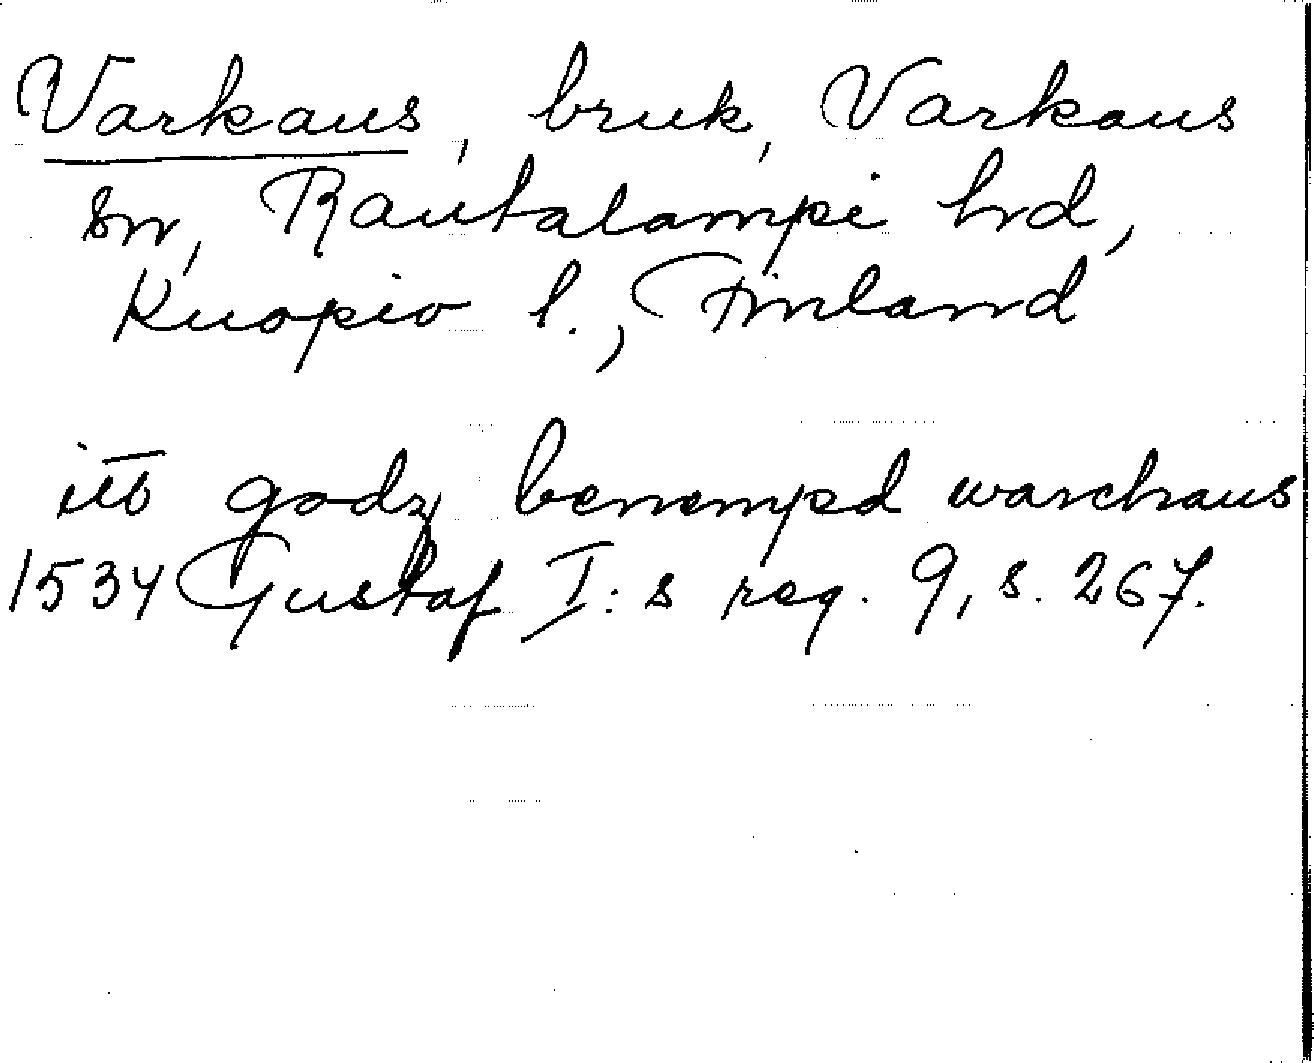 Varkaus, bruk, Varkaus
sn, Rautalampi hrd,
Kuopio l., Finland
itt godz benempd warchaus
1534 Gustaf I:s reg. 9, s. 267.